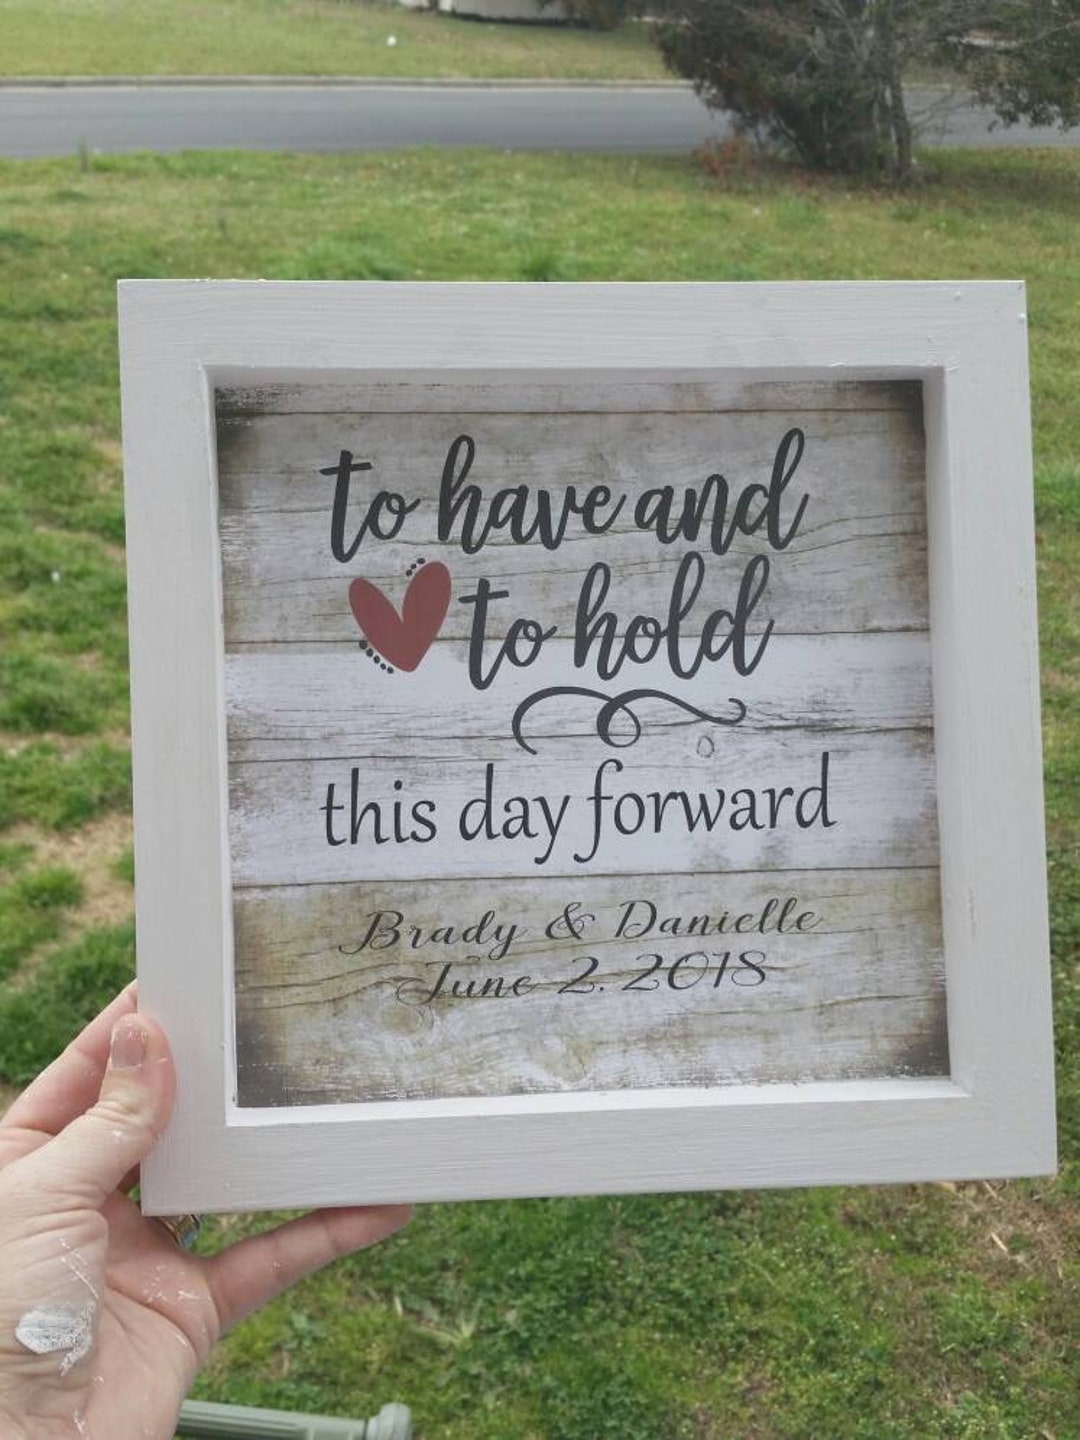 to have and
to hold
this day forward
Brady & Danielle
June 2. 2018